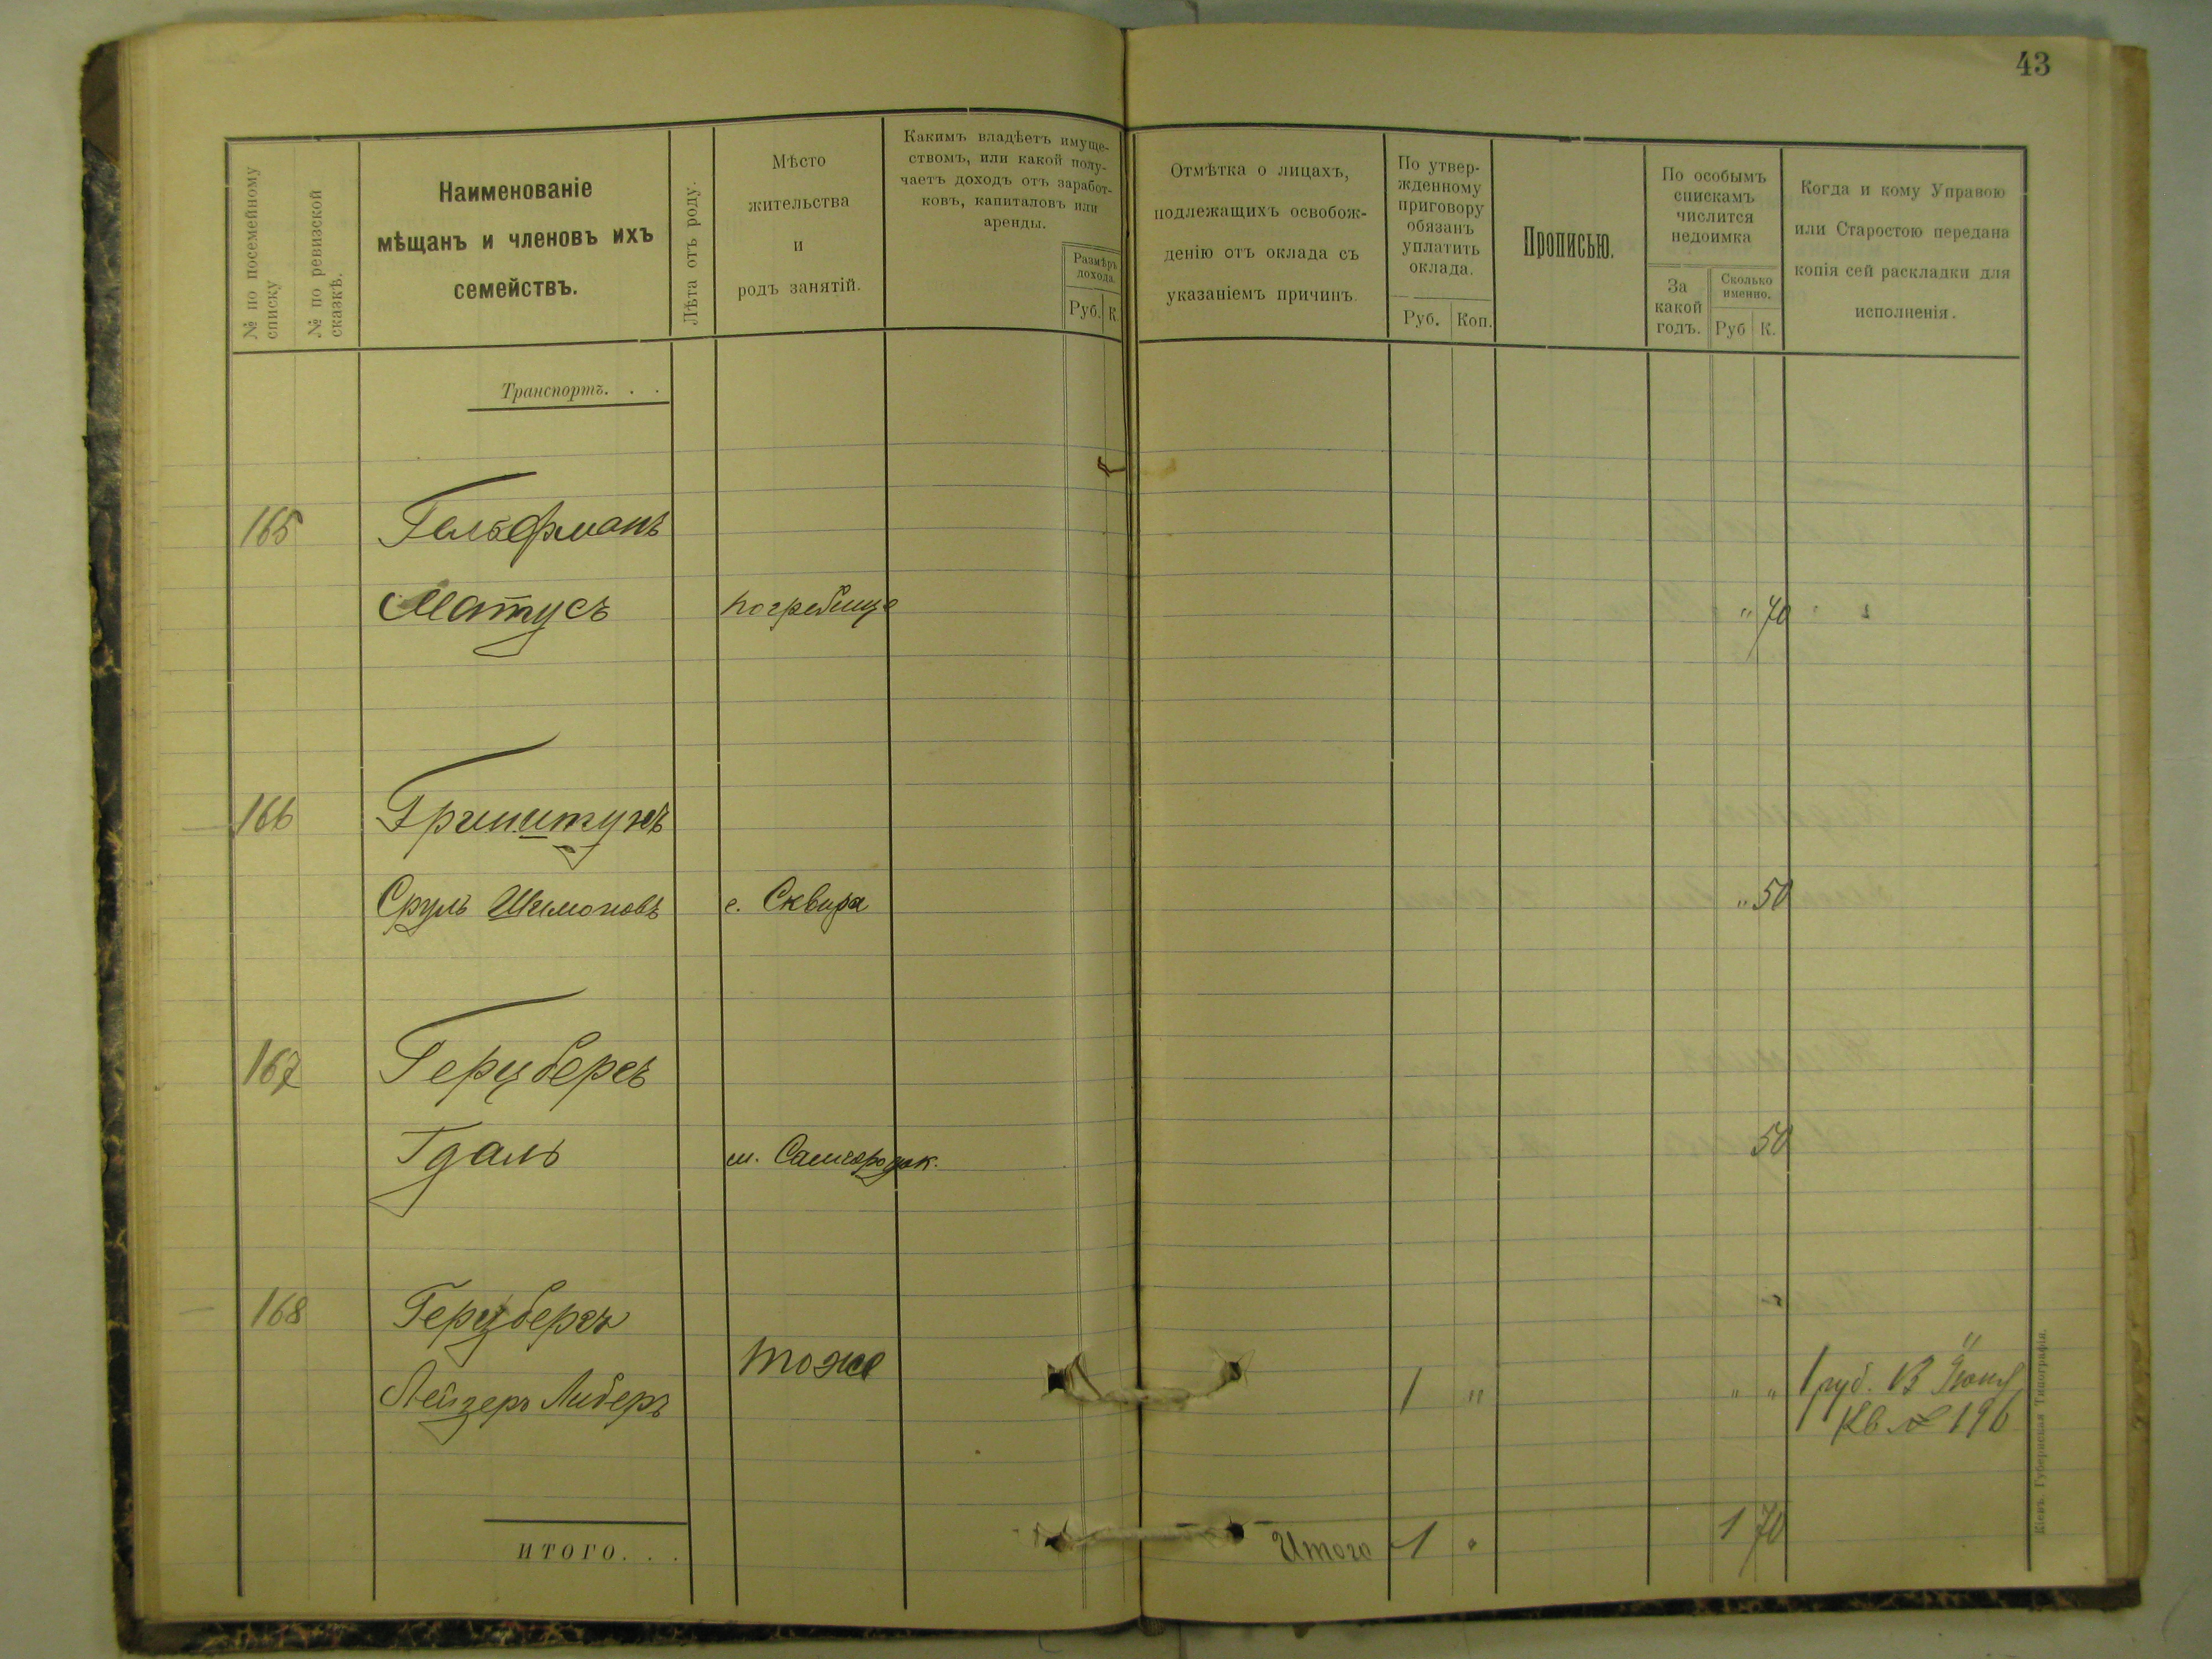 43
№ по посемейному
списку
№ по ревизской
сказкѣ.
Наименованіе
мѣщанъ и членовъ ихъ
семействъ.
Лѣта отъ роду.
Мѣсто
жительства
и
родъ занятій.
Какимъ владѣетъ имуще-
ствомъ, или какой полу-
чаетъ доходъ отъ заработ-
ковъ, капиталовъ или
аренды.
Размѣръ
дохода.
Руб. К.
Отмѣтка о лицахъ,
подлежащихъ освобож-
денію отъ оклада съ
указаніемъ причинъ.
По утвер-
жденному
приговору
обязанъ
уплатить
оклада.
Руб. Коп.
Прописью.
По особымъ
спискамъ
числится
недоимка
За
какой
годъ.
Сколько
именно.
Руб К.
Когда и кому Управою
или Старостою передана
копія сей раскладки для
исполненія.
Транспортъ. . .
165 Гельфманъ
Матусъ погребище " 70
166 Гринштунъ
Сруль Шимоновъ с. Сквира " 50
167 Герцбергъ
Гдаль м. Самгородок. 50
168 Герцбергъ
тоже
Лейзеръ Либеръ 1 " " " 1 руб.
Кв № 196
ИТОГО. . .
Итого 1 " 1 70
Кіевъ. Губернская Типографія.